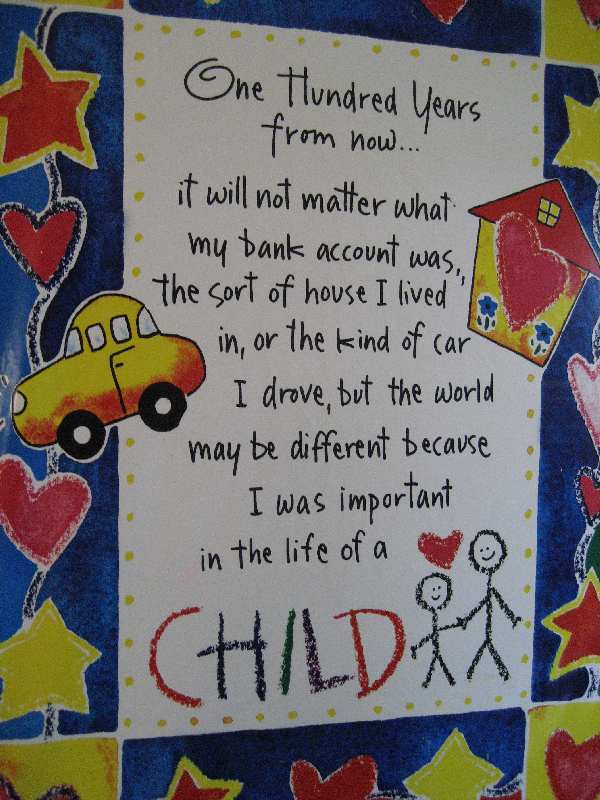 One Hundred Years
from now...
it will not matter what
my bank account was,,
the sort of house I lived
in, or the kind of car
I drove, but the world
may be different because
I was important
in the life of a
CHILD